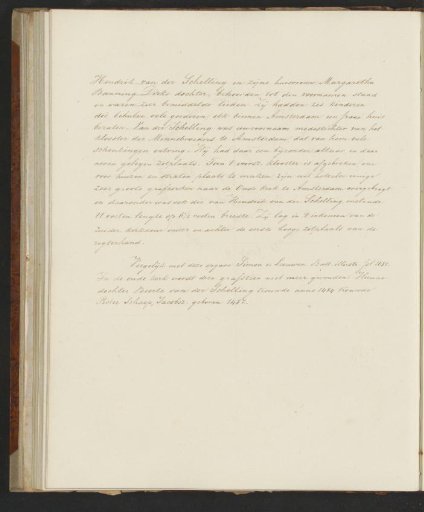 Hendrik van der Schelling en zijne huisvrouw Margaretha
Banning Dirks dochter, behoorden tot den voornamen stand
en waren zeer bemiddelde lieden. Zij hadden zes kinderen
die behalve vele goederen, elk binnen Amsterdam een fraai huis
erfden. Van der Schelling was een voornaam medestichter van het
klooster der Minnebroeders te Amsterdam, dat van hem vele
schenkingen ontving. Hij had daar een bijzonder altaar en daar
neven gelegen rustplaats. Toen 't voorz. klooster is afgebroken om
voor huizen en straten plaats te maken zijn uit hetzelve eenige
zeer groote grafzerken naar de Oude Kerk te Amsterdam overgebragt
en daaronder was ook die van Hendrik van der Schelling zijnde
11 voeten lengte op 6½ voeten breedte. Zij lag in 't inkomen van de
zuider kerkdeur onder en achter de eerste hooge zitplaats van de
regterhand.
Vergelijk met deze opgave Simon en Lauwen Bast
In de oude kerk wordt deze grafsteen niet meer gevonden. Hunne
dochter Beerte van der Schelling trouwde anno 1484 trouwde
Pieter Schaep Jacobsz. geboren 1457.